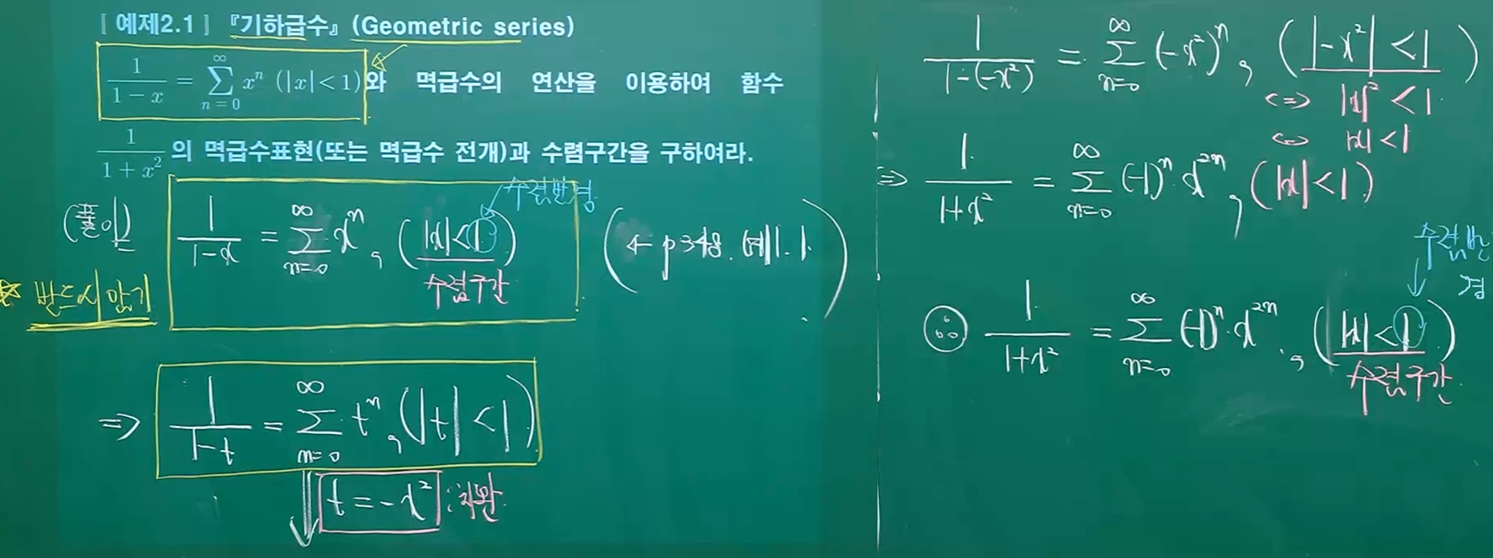 [ 예제2.1 ] 『기하급수』 (Geometric series)
1/(1-x) = ∑_{n=0}^{∞} x^n (|x|<1)와 멱급수의 연산을 이용하여 함수
1/(1+x²) 의 멱급수표현(또는 멱급수 전개)과 수렴구간을 구하여라.
(풀이)
1/(1-x) = ∑_{n=0}^{∞} x^n , (|x|<1)
수렴반경
수렴구간
(← p348.
☆ 반드시 암기
⇒ 1/(1-t) = ∑_{n=0}^{∞} t^n , (|t|<1)
⇓ t = -x² : 치환
1/(1-(-x²)) = ∑_{n=0}^{∞} (-x²)^n , (|-x²|<1)
⇔ |x|²<1
⇔ |x|<1
⇒ 1/(1+x²) = ∑_{n=0}^{∞} (-1)^n x^{2n} , (|x|<1)
수렴반경
∴ 1/(1+x²) = ∑_{n=0}^{∞} (-1)^n · x^{2n} , (|x|<1)
수렴구간